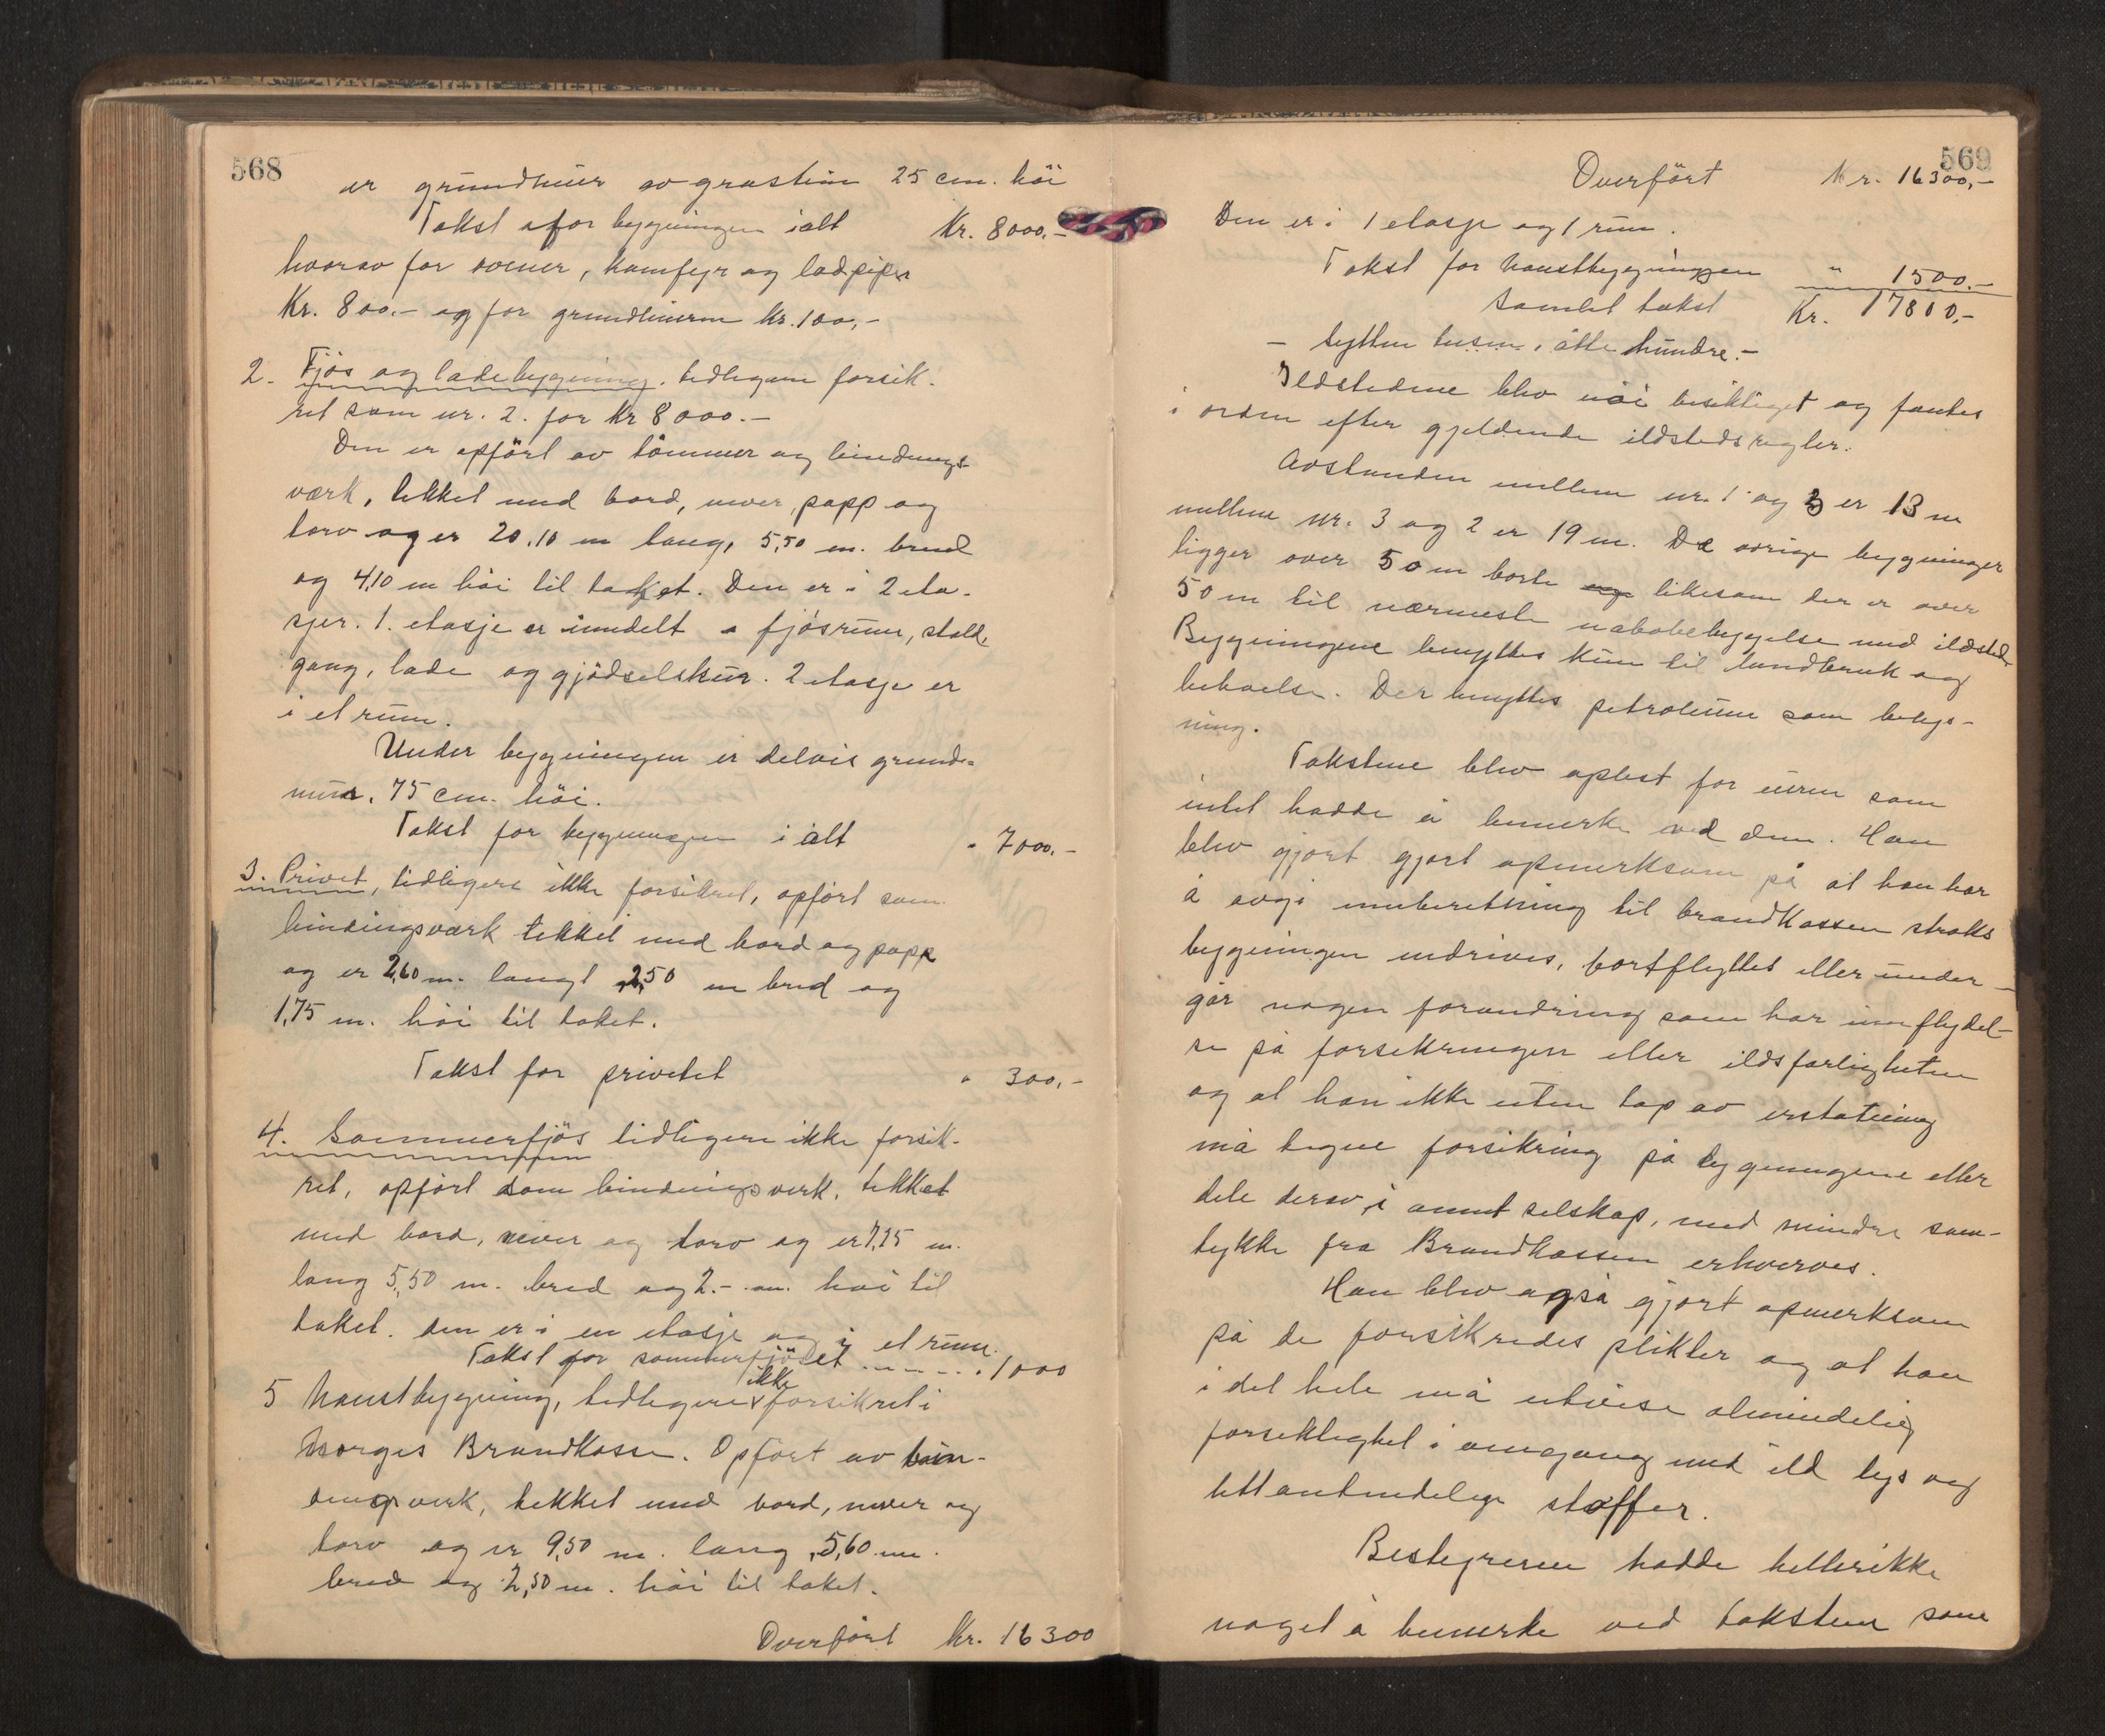 568
er grundmur av grastein 25 cm. höi
Takst for bygningen ialt Kr. 8000.-
hvorav for ovner, komfyr og ladpiper
Kr. 800.- og for grundmuren kr. 100,-
2. Fjös og ladebygning. tidligere forsik-
ret som nr. 2. for Kr 8000.-
Den er opfört av tömmer og bindings
værk, tekket med bord, never, papp og
torv og er 20.10 m lang, 5,50 m. bred
og 4,10 m höi til taket. Den er i 2 eta-
sjer. 1. etasje er inndelt i fjösrum, stald,
gang, lade og gjödselskur. 2 etasje er
i et rum.
Under bygningen er delvis grund-
mur, 75 cm. höi.
Takst for bygningen i alt " 7000.-
3. Privet, tidligere ikke forsikret, opfört som
bindingsværk tekket med bord og papp
og er 2,60 m. langt 2,50 m bred og
1,75 m. höi til taket.
Takst for privetet " 300,-
4. Sommerfjös tidligere ikke forsik-
ret, opfört som bindingsverk, tekket
med bord, never og torv og er 7,25 m.
lang 5,50 m. bred og 2.- m. höi til
taket. den er i en etasje og i et rum.
Takst for sommerfjöset - - - - " 1000
5 Naustbygning, tidligere ikke forsikret i
Norges Brandkasse. Opfört av bin-
dingsverk, tekket med bord, never og
torv og er 9,50 m. lang, 5,60 m.
bred og 2,50 m. höi til taket.
Overfört Kr. 16300
569
Overfört Kr. 16300,-
Den er i 1 etasje og 1 rum.
Takst for naustbygningen " 1500.-
Samlet takst Kr. 17800,-
- sytten tusen, åtte hundre.-
Ildstedene blev nöi besiktiget og fantes
i orden efter gjeldende ildstedsregler.
Avstanden mellem nr. 1 og 3 er 13 m
mellem nr. 3 og 2 er 19 m. De övrige bygninger
ligger over 50 m borte og likesom der er over
50 m til nærmeste nabobebyggelse med ildsted.
Bygningene benyttes kun til landbruk og
beboelse. Der benyttes petroleum som belys-
ning.
Takstene blev oplest for eieren som
intet hadde å bemerke ved dem. Han
blev gjort gjort opmerksom på at han har
å avgi innberetning til brandkassen straks
bygningen nedrives, bortflyttes eller under-
går nogen forandring som har innflydel-
se på forsikringen eller ildsfarligheten
og at han ikke uten tap av erstatning
må tegne forsikring på bygningene eller
dele derav, i annet selskap, med mindre sam-
tykke fra Brandkassen erhverves.
Han blev også gjort opmerksom
på de forsikredes plikter og at han
i det hele må utvise almindelig
forsiktighet i omgang med ild lys og
lettantendelige stoffer.
Bestyreren hadde hellerikke
noget å bemerke ved taksten som